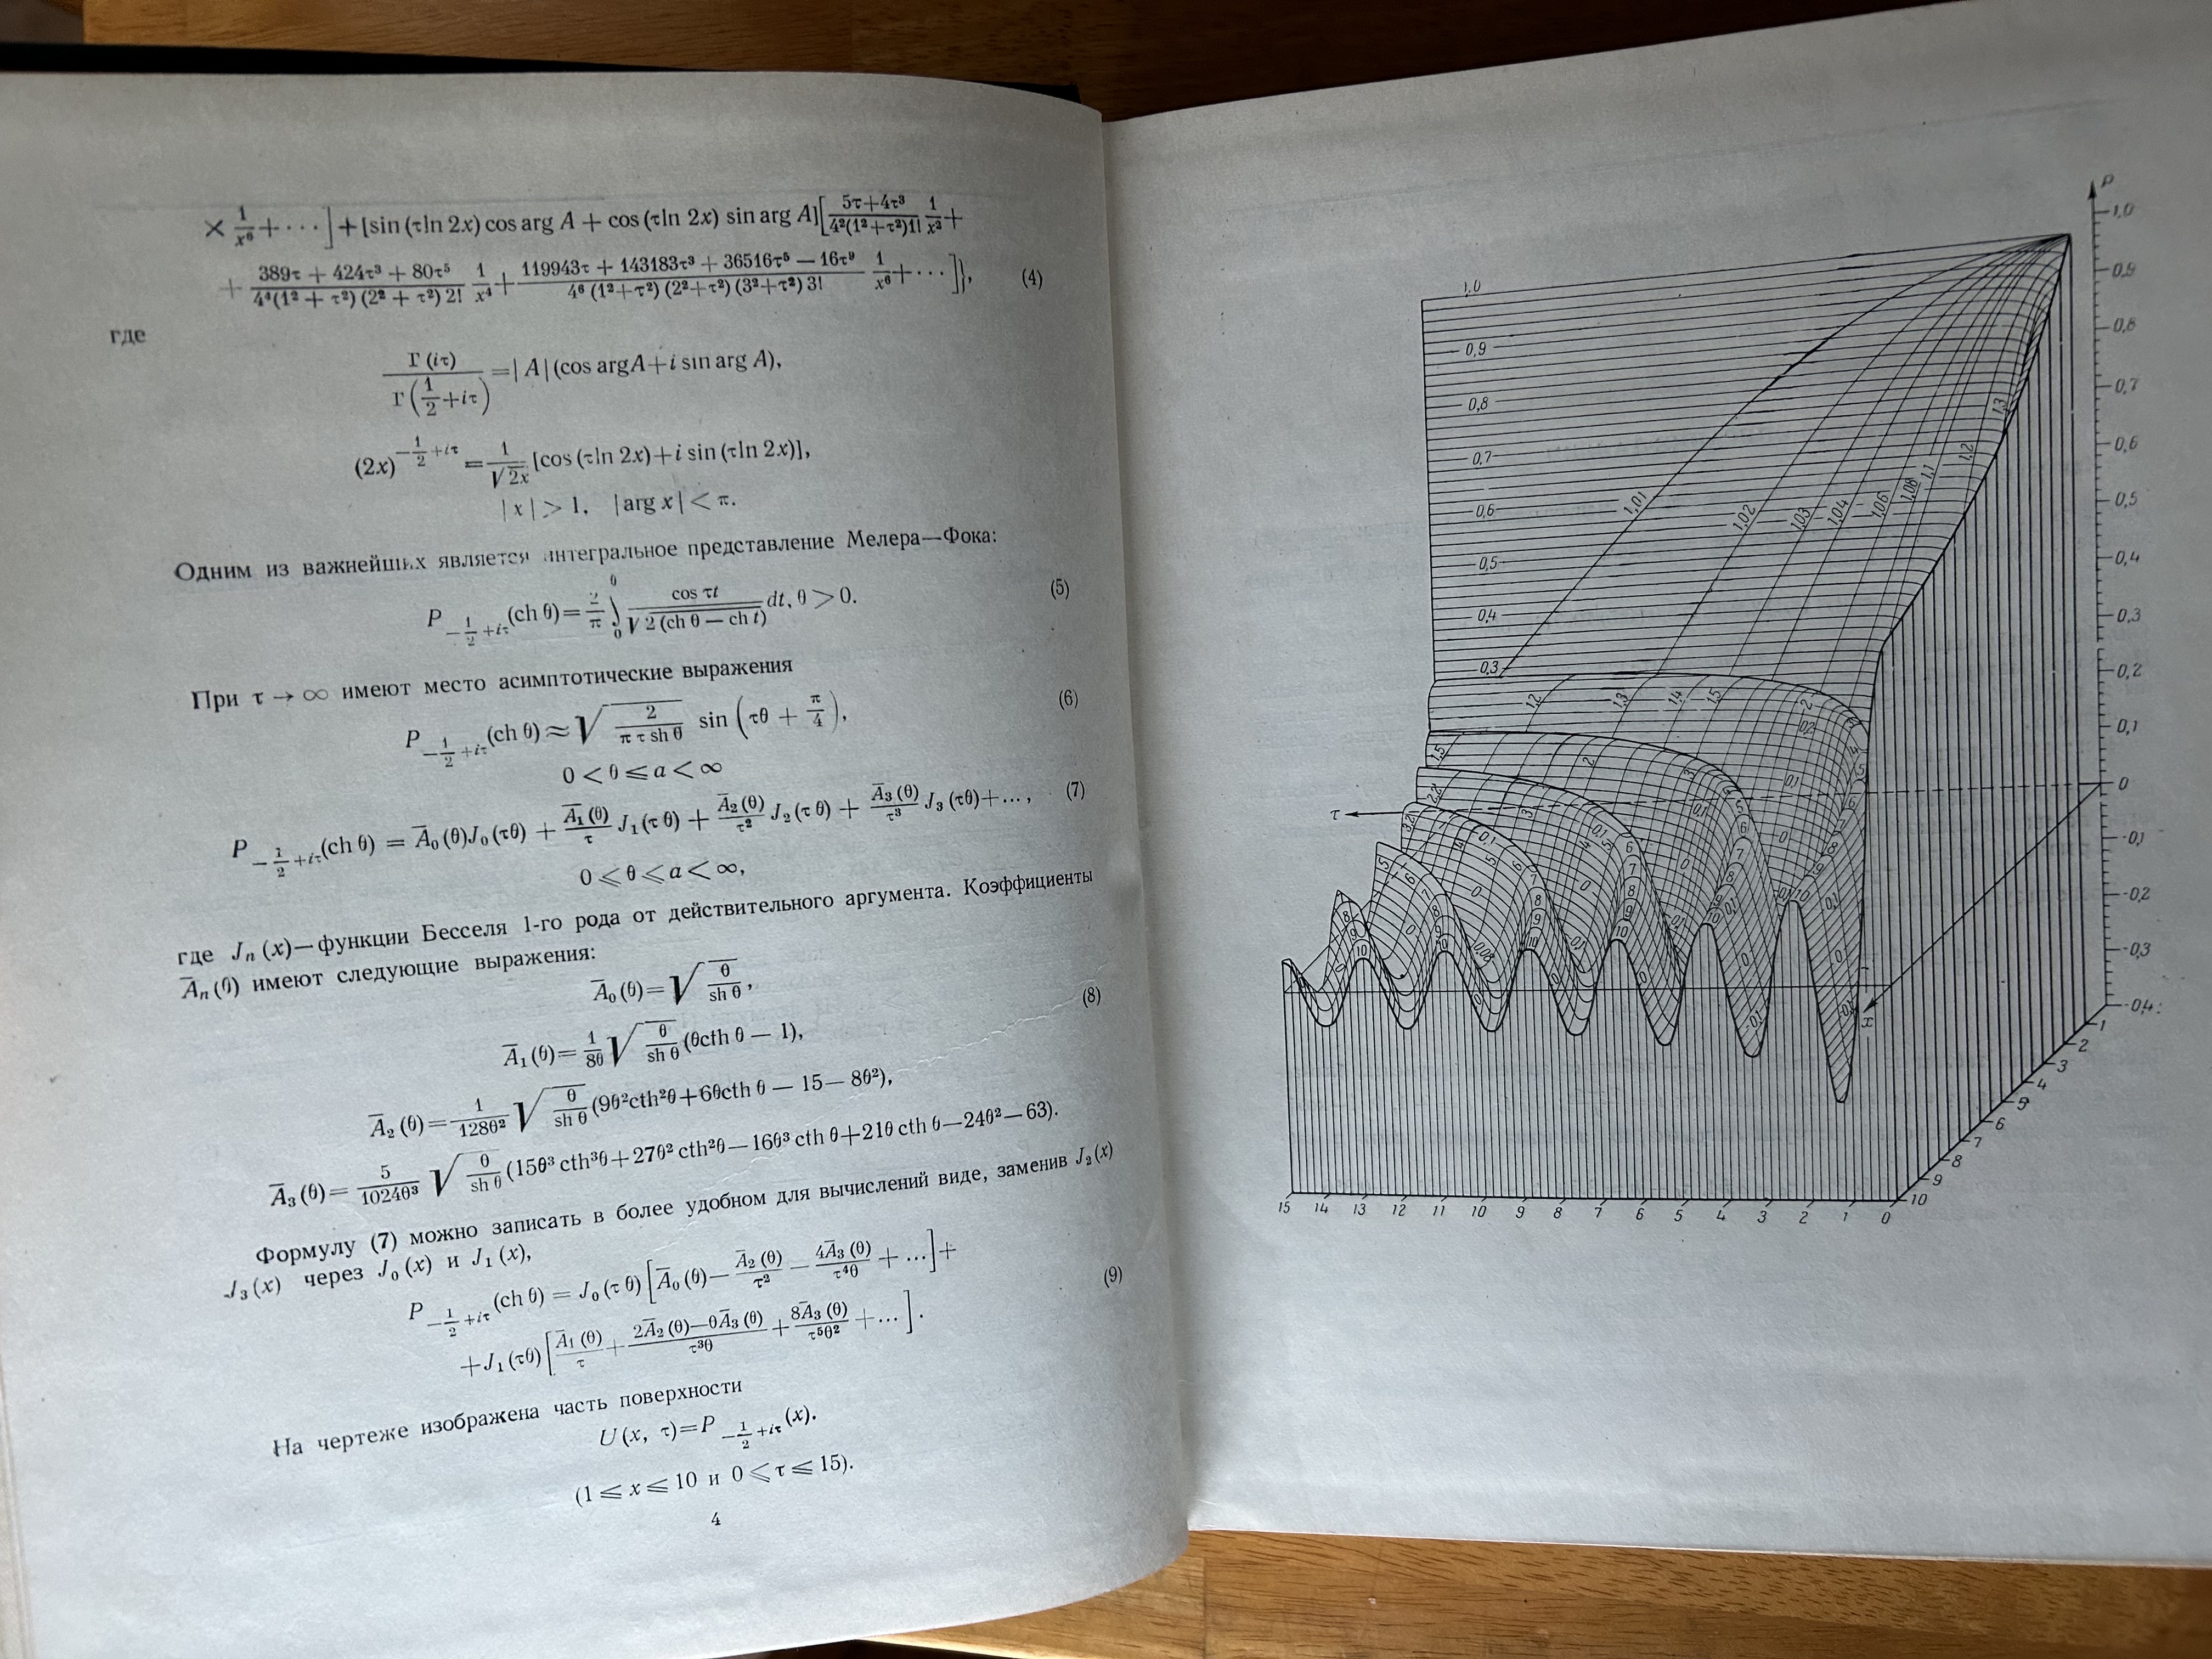 × 1/x⁶ + ⋯ ] + [sin (τ ln 2x) cos arg A + cos (τ ln 2x) sin arg A] [ (5τ+4τ³)/(4²(1²+τ²)1!) 1/x² +
+ (389τ + 424τ³ + 80τ⁵)/(4⁴(1² + τ²) (2² + τ²) 2!) 1/x⁴ + (119943τ + 143183τ³ + 36516τ⁵ — 16τ⁹)/(4⁶ (1²+τ²) (2²+τ²) (3²+τ²) 3!) 1/x⁶ + ⋯ ]}, (4)
где
Γ (iτ)/Γ(1/2+iτ) = | A | (cos arg A + i sin arg A),
(2x)^(−1/2+iτ) = 1/√2x [cos (τ ln 2x) + i sin (τ ln 2x)],
| x | > 1, | arg x | < π.
Одним из важнейших является интегральное представление Мелера—Фока:
P₋½₊iτ (ch θ) = 2/π ∫₀^θ cos τt/√2 (ch θ — ch t) dt, θ > 0. (5)
При τ → ∞ имеют место асимптотические выражения
P₋½₊iτ (ch θ) ≈ √(2/(π τ sh θ)) sin (τθ + π/4), (6)
0 < θ ⩽ a < ∞
P₋½₊iτ (ch θ) = Ā₀ (θ) J₀ (τθ) + Ā₁ (θ)/τ J₁ (τ θ) + Ā₂ (θ)/τ² J₂ (τ θ) + Ā₃ (θ)/τ³ J₃ (τθ) + ..., (7)
0 ⩽ θ ⩽ a < ∞,
где Jₙ (x)—функции Бесселя 1-го рода от действительного аргумента. Коэффициенты
Āₙ (θ) имеют следующие выражения:
Ā₀ (θ) = √(θ/sh θ),
Ā₁ (θ) = 1/8θ √(θ/sh θ) (θcth θ — 1), (8)
Ā₂ (θ) = 1/128θ² √(θ/sh θ) (9θ²cth²θ + 6θcth θ — 15 — 8θ²),
Ā₃ (θ) = 5/1024θ³ √(θ/sh θ) (15θ³ cth³θ + 27θ² cth²θ — 16θ³ cth θ + 21θ cth θ — 24θ² — 63).
Формулу (7) можно записать в более удобном для вычислений виде, заменив J₂ (x)
J₃ (x) через J₀ (x) и J₁ (x),
P₋½₊iτ (ch θ) = J₀ (τ θ) [ Ā₀ (θ) — Ā₂ (θ)/τ² — 4Ā₃ (θ)/τ⁴θ + ... ] +
+ J₁ (τθ) [ Ā₁ (θ)/τ + (2Ā₂ (θ)—θĀ₃ (θ))/τ³θ + 8Ā₃ (θ)/τ⁵θ² + ... ]. (9)
На чертеже изображена часть поверхности
U (x, τ) = P₋½₊iτ (x).
(1 ⩽ x ⩽ 10 и 0 ⩽ τ ⩽ 15).
4
P
1,0
0,9
0,8
0,7
0,6
0,5
0,4
0,3
0,2
0,1
0
-0,1
-0,2
-0,3
-0,4
1,0
0,9
0,8
0,7
0,6
0,5
0,4
0,3
1,01
1,02
1,03
1,04
1,06
1,08
1,1
1,2
1,3
1,2
1,3
1,4
1,5
2
τ
x
1
2
3
4
5
6
7
8
9
10
15 14 13 12 11 10 9 8 7 6 5 4 3 2 1 0